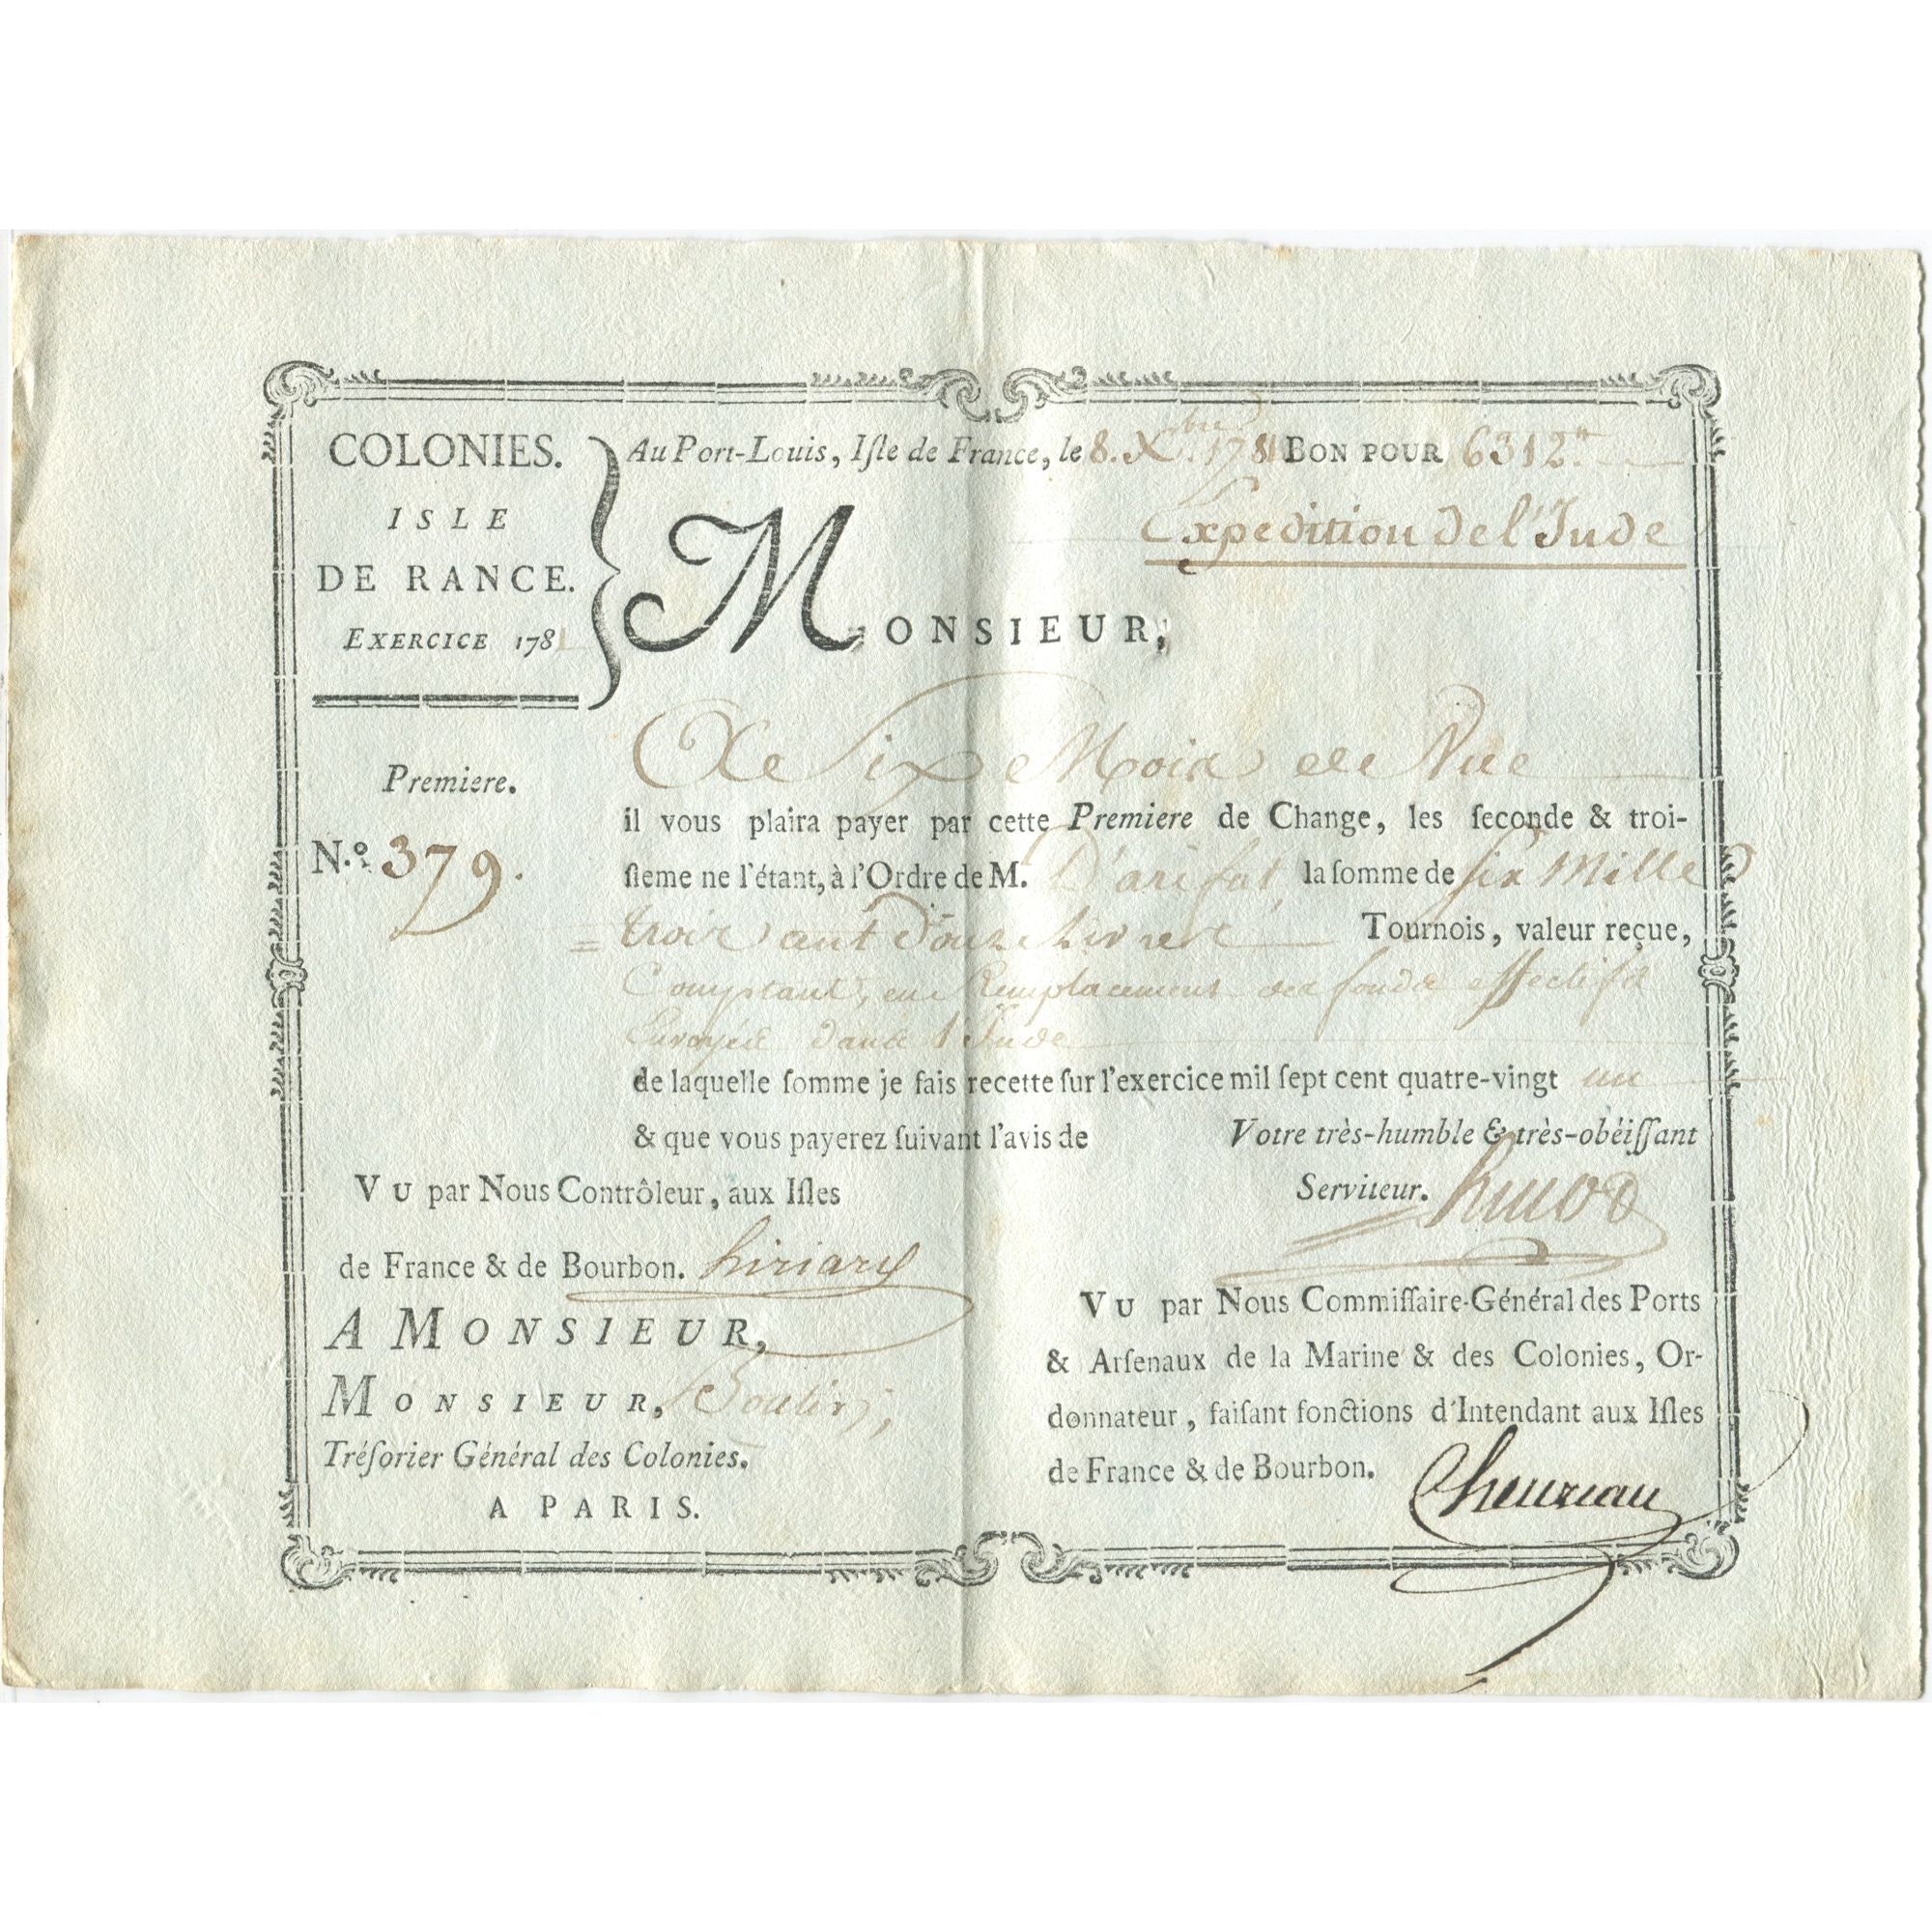 COLONIES.
ISLE
DE RANCE.
EXERCICE 1781
Au Port-Louis, Iſle de France, le 8. Xbre 1781 BON POUR 6312.tt
Expedition de l'Inde
MONSIEUR,
Premiere.
N.º 379.
A Six Mois de Vue
il vous plaira payer par cette Premiere de Change, les ſeconde & troi-
ſieme ne l'étant, à l'Ordre de M. D'arifat, la ſomme de ſix Mille
= trois cent douze Livres Tournois, valeur reçue,
Comptant, en Remplacement des fonds effectifs
Envoyés dans l'Inde
de laquelle ſomme je fais recette ſur l'exercice mil ſept cent quatre-vingt un
& que vous payerez ſuivant l'avis de
Votre très-humble & très-obéiſſant
Serviteur.
VU par Nous Contrôleur, aux Iſles
de France & de Bourbon. hiriart
A MONSIEUR,
MONSIEUR, Boutin,
Tréſorier Général des Colonies.
A PARIS.
VU par Nous Commiſſaire-Général des Ports
& Arſenaux de la Marine & des Colonies, Or-
donnateur, faiſant fonctions d'Intendant aux Iſles
de France & de Bourbon. Chevreau